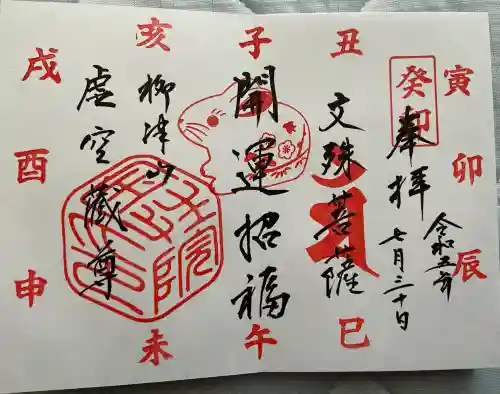 癸卯
奉拝
令和五年
七月三十日
文殊菩薩
開運招福
柳津山
虚空蔵尊
子
丑
寅
卯
辰
巳
午
未
申
酉
戌
亥